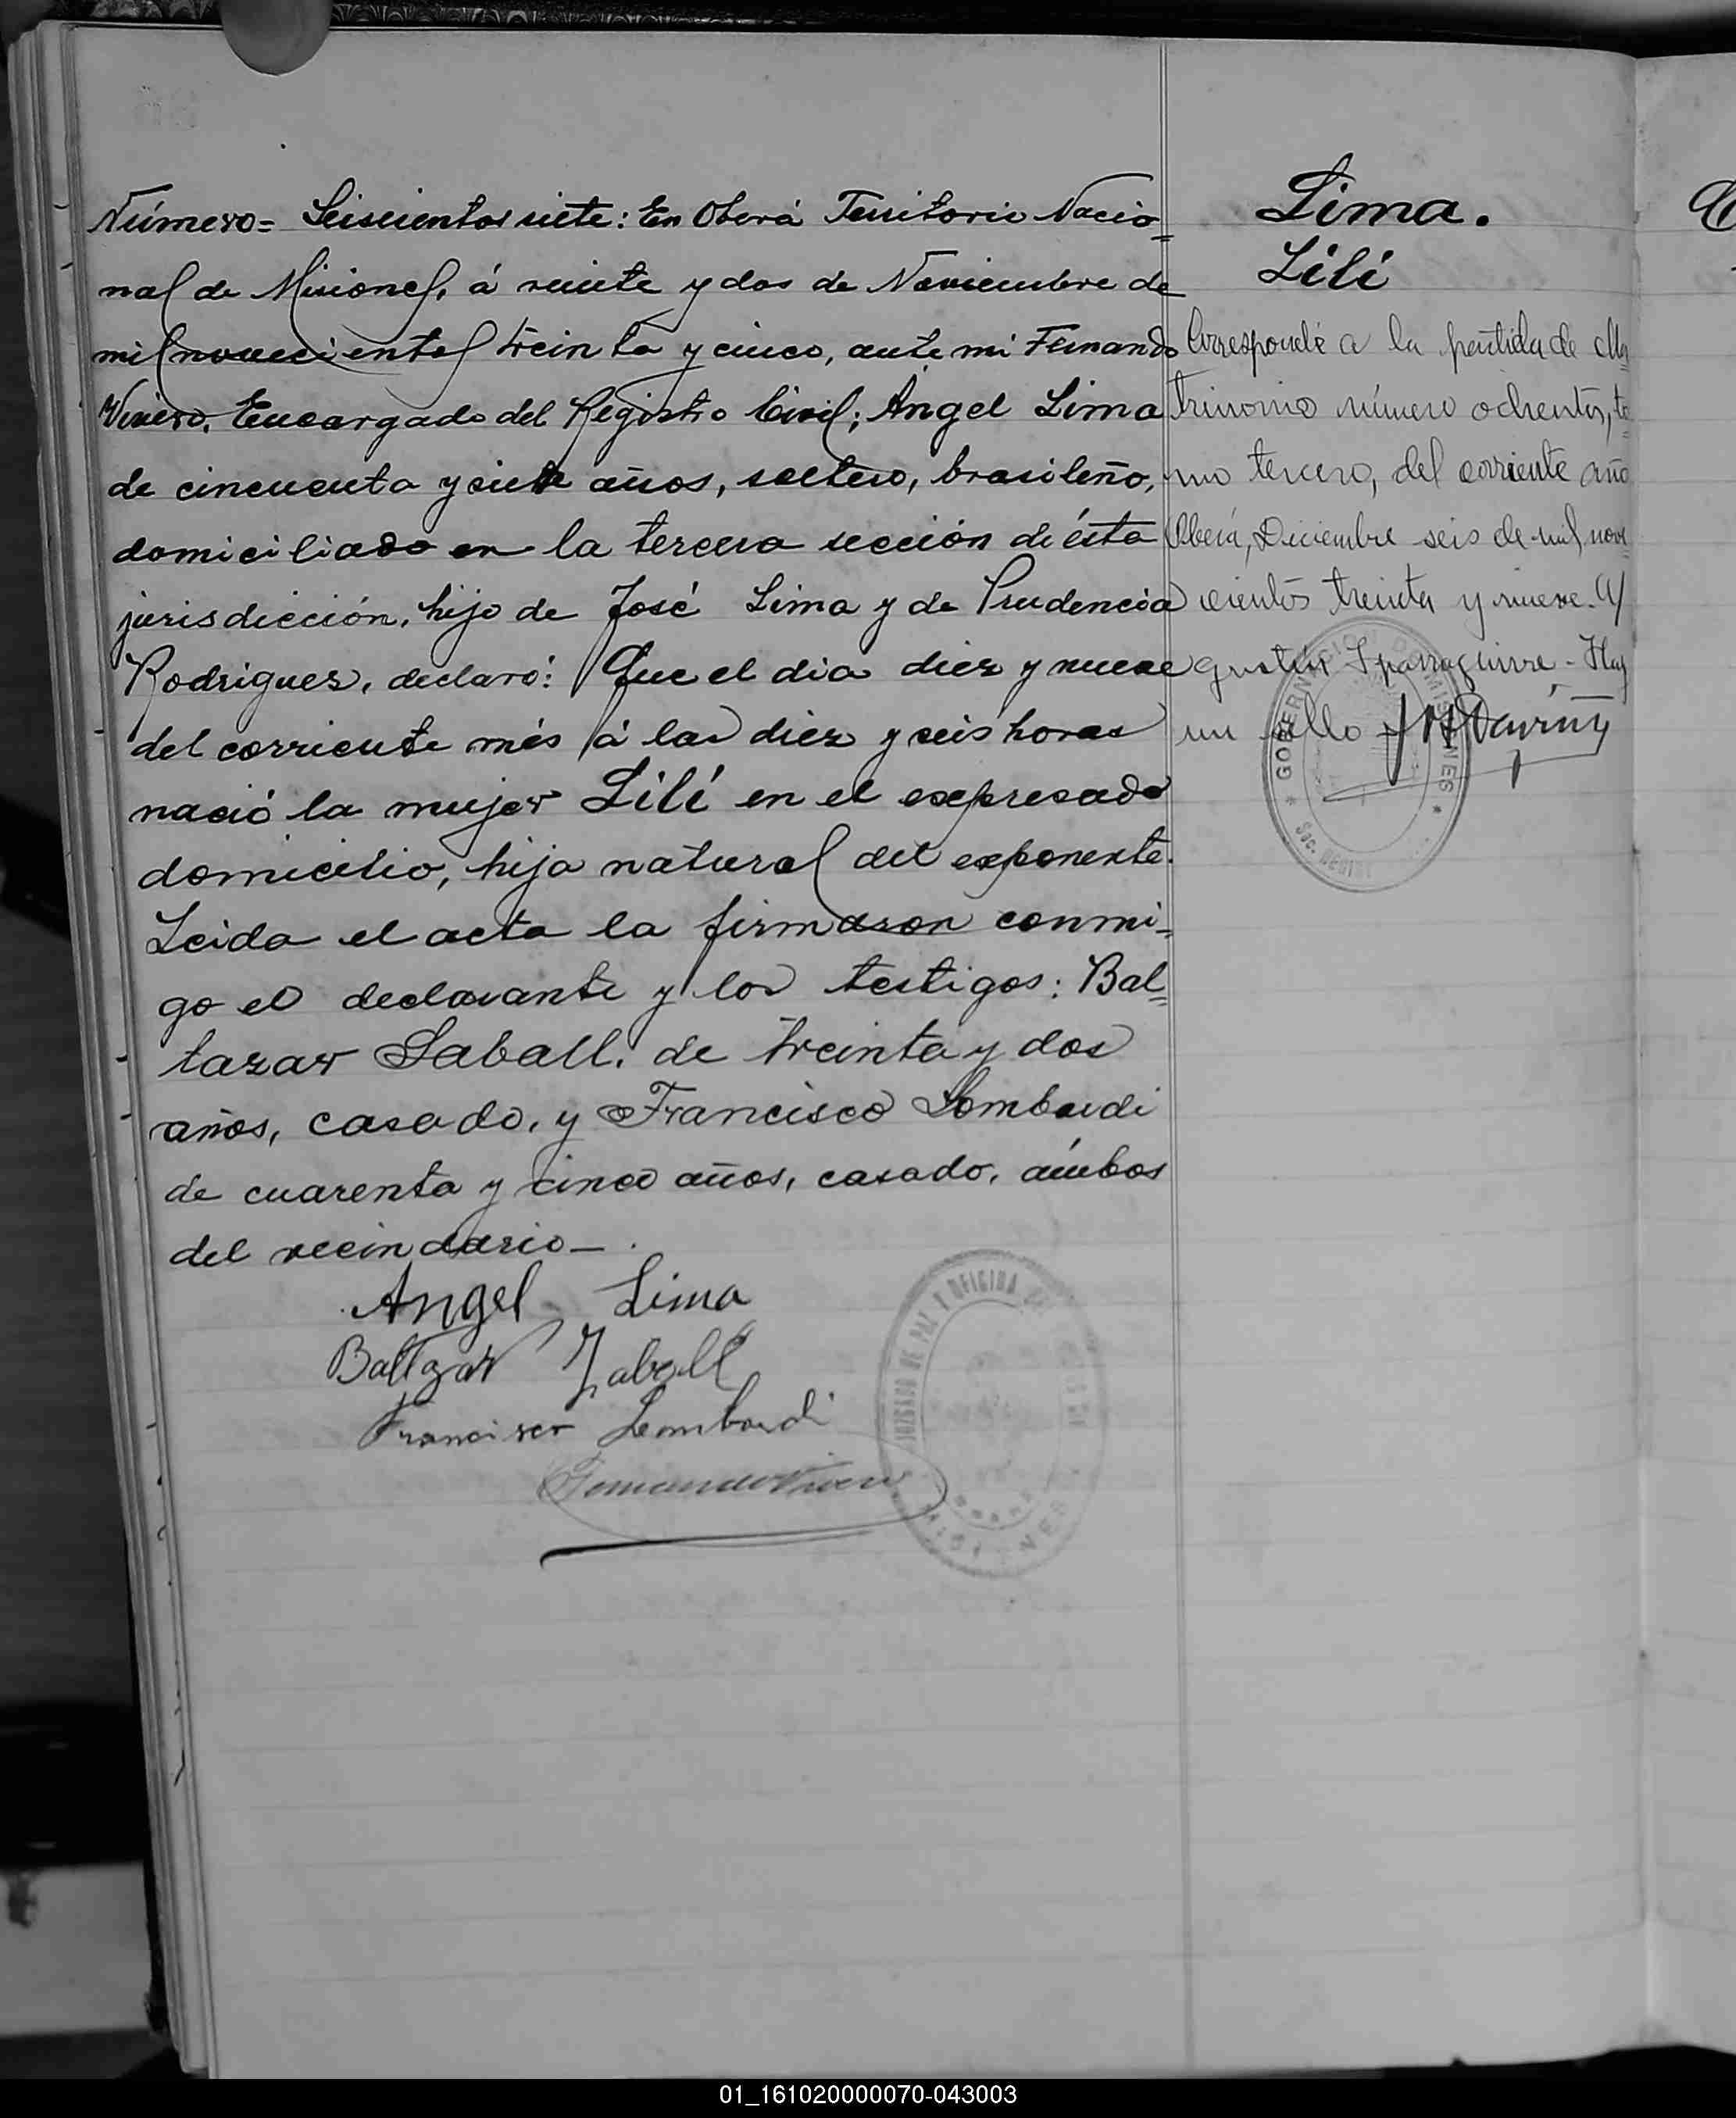 Número= Seiscientos siete: En Oberá Territorio Nacio=
nal de Misiones, á veinte y dos de Noviembre de
mil novecientos treinta y cinco, ante mi Fernando
Viviero, Encargado del Registro Civil; Ángel Lima
de cincuenta y siete años, soltero, brasileño,
domiciliado en la tercera sección de ésta
jurisdicción, hijo de José Lima y de Prudencia
Rodriguez, declaró: Que el dia diez y nueve
del corriente més á las diez y seis horas
nació la mujer Lilí en el expresado
domicilio, hija natural del exponente.
Leida el acta la firmaron conmi=
go el declarante y los testigos: Bal=
tazar Saball, de treinta y dos
años, casado, y Francisco Lombardi
de cuarenta y cinco años, casado, ámbos
del vecindario—.
Angel Lima
Baltazar Zaball
Francisco Lombardi
JUZGADO DE PAZ Y OFICINA
MISIONES
Lima.
Lilí
Corresponde a la partida de Ma
trimonio número ochenta, to=
mo tercero, del corriente año
Oberá, Diciembre seis de mil nove
cientos treinta y nueve. A/
gustín Iparraguirre - Hay
un sello
GOBERNACION DE MISIONES
01_161020000070-043003